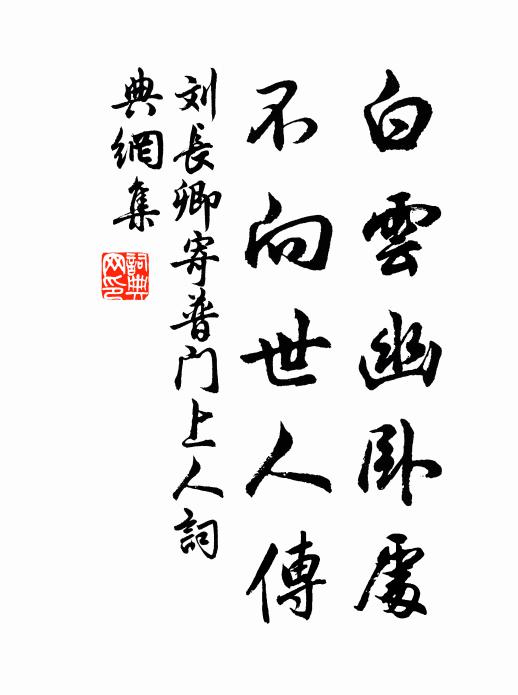 白雲幽卧處
不向世人傳
刘長卿寄普门上人詞
典網集
詞典网印